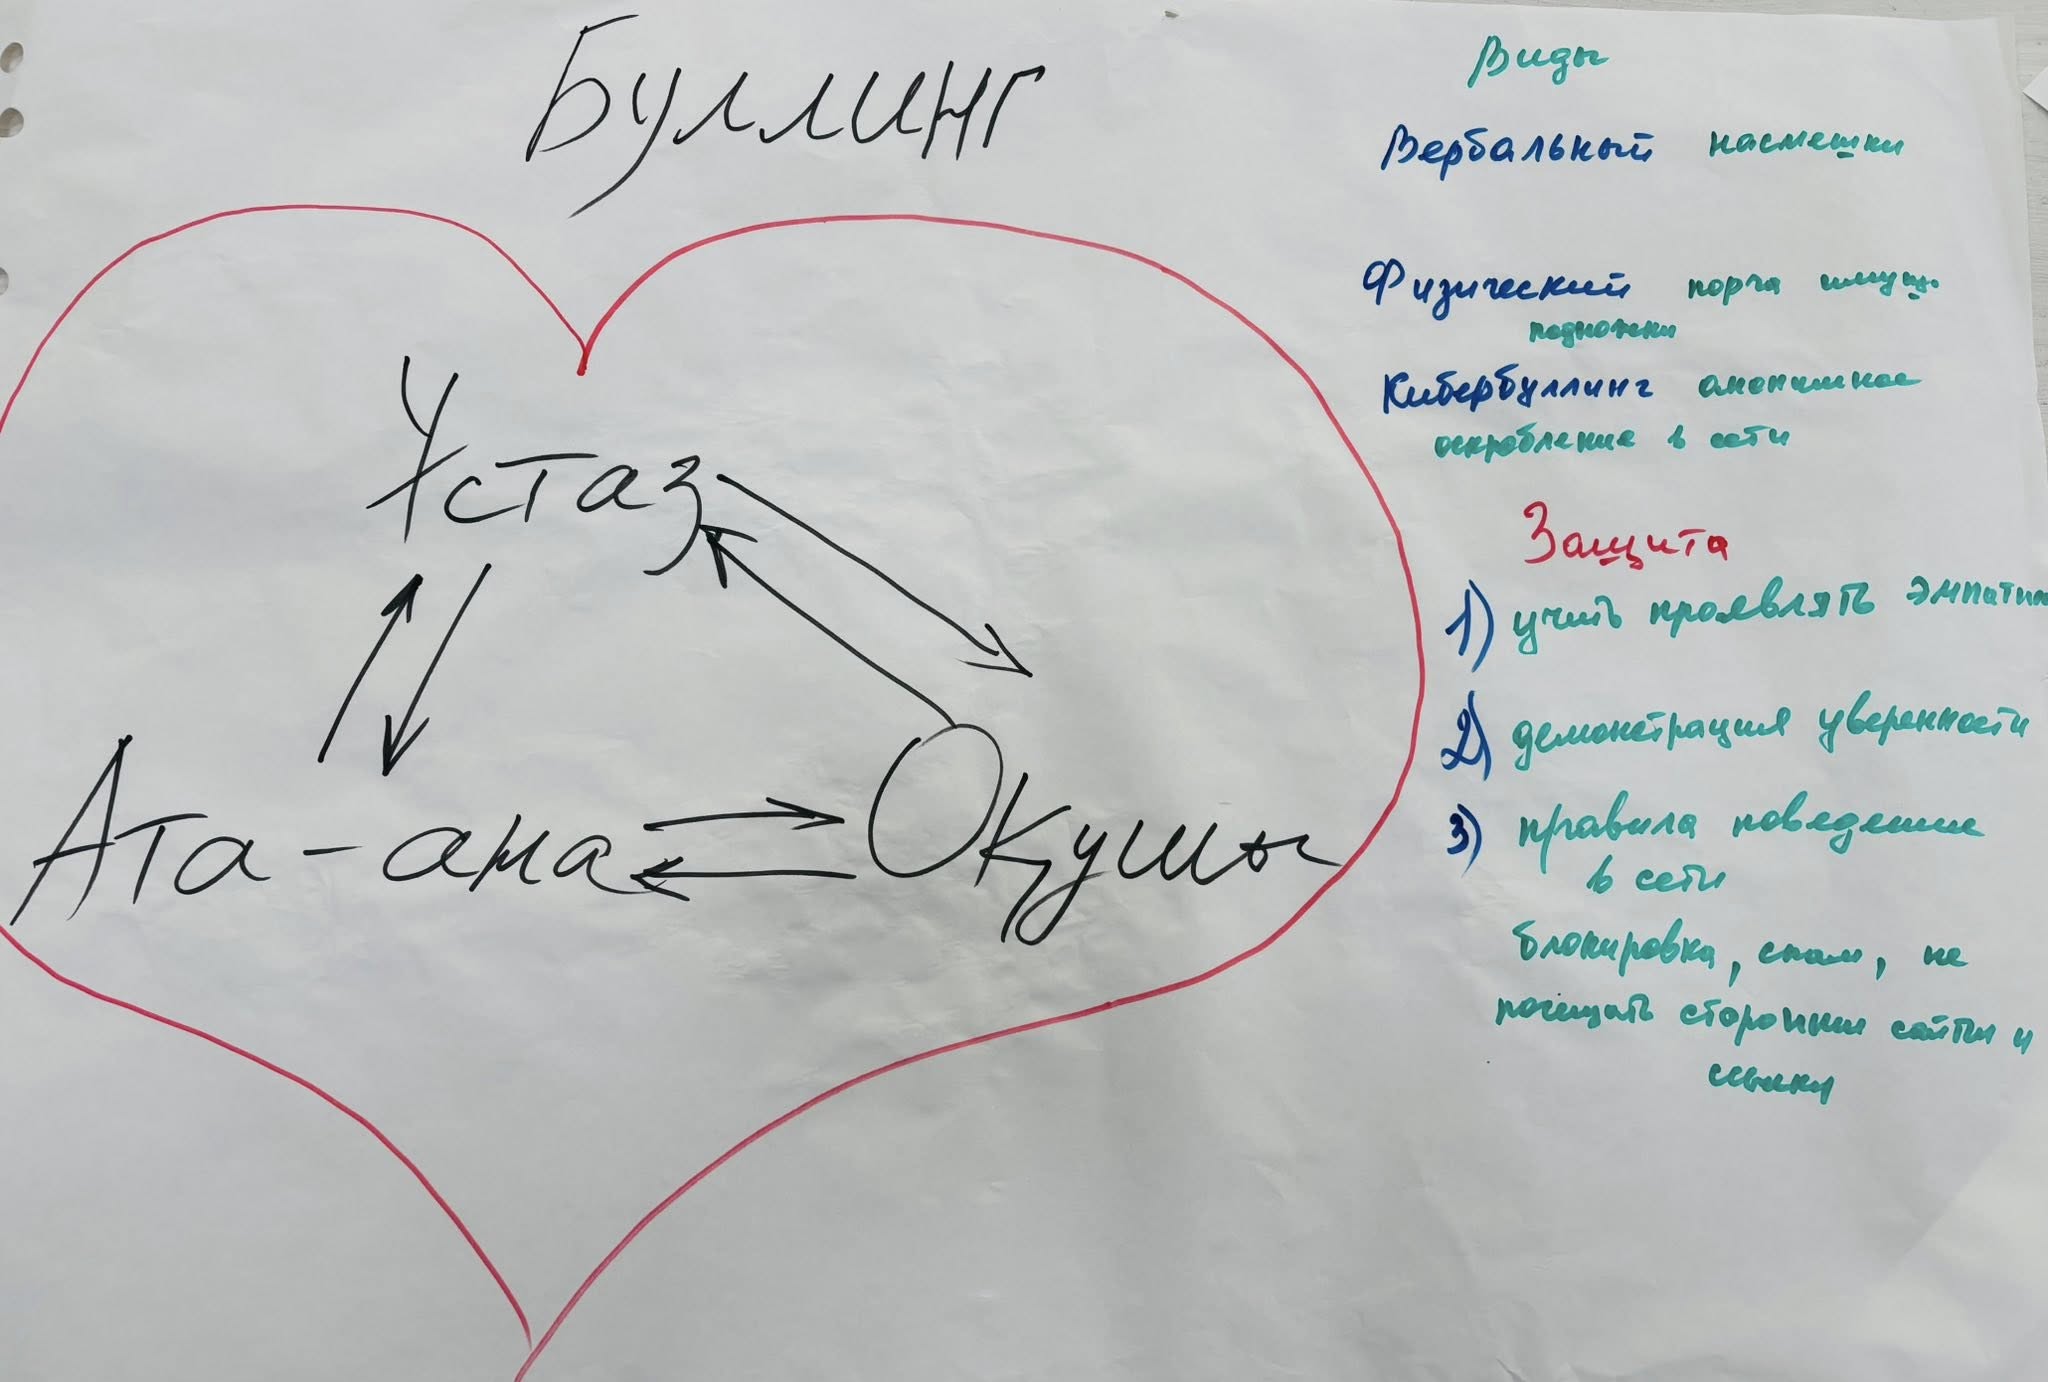 Буллинг
Устаз
Ата-ана
Оқушы
Виды
Вербальный насмешки
Физический порча имущ.
подножки
Кибербуллинг анонимное
оскробление в сети
Защита
1) учить проявлять эмпатию
2) демонстрация уверенности
3) правила поведение
в сети
блокировка, спам, не
посещать сторонние сайты и
ссылки